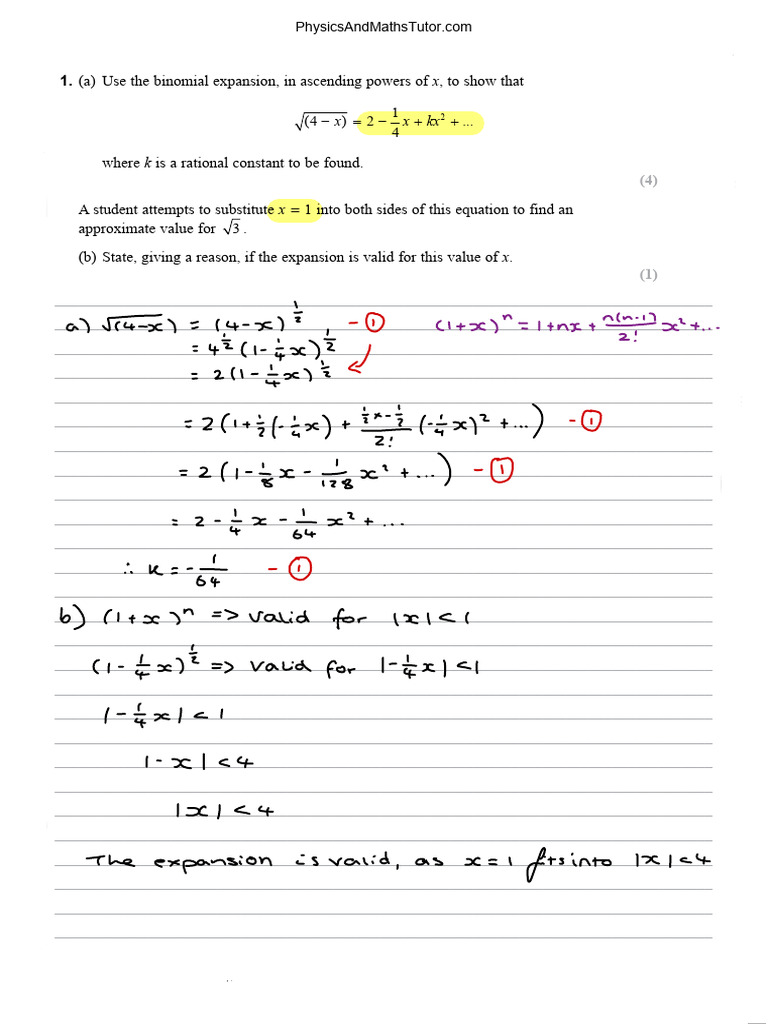 PhysicsAndMathsTutor.com
1. (a) Use the binomial expansion, in ascending powers of x, to show that
√(4 − x) = 2 − 1/4 x + kx² + ...
where k is a rational constant to be found.
(4)
A student attempts to substitute x = 1 into both sides of this equation to find an
approximate value for √3 .
(b) State, giving a reason, if the expansion is valid for this value of x.
(1)
a) √(4-x) = (4-x)^(1/2) - ① (1+x)^n = 1+nx+ n(n-1)/2! x²+...
= 4^(1/2) (1-1/4 x)^(1/2)
= 2(1-1/4 x)^(1/2)
= 2(1+1/2(-1/4 x) + (1/2 × -1/2)/2! (-1/4 x)² + ...) - ①
= 2(1-1/8 x - 1/128 x² + ...) - ①
= 2 - 1/4 x - 1/64 x² + ...
∴ k = - 1/64 - ①
b) (1+x)^n => valid for |x| < 1
(1-1/4 x)^(1/2) => valid for |-1/4 x| < 1
|-1/4 x| < 1
|-x| < 4
|x| < 4
The expansion is valid, as x=1 fits into |x| < 4